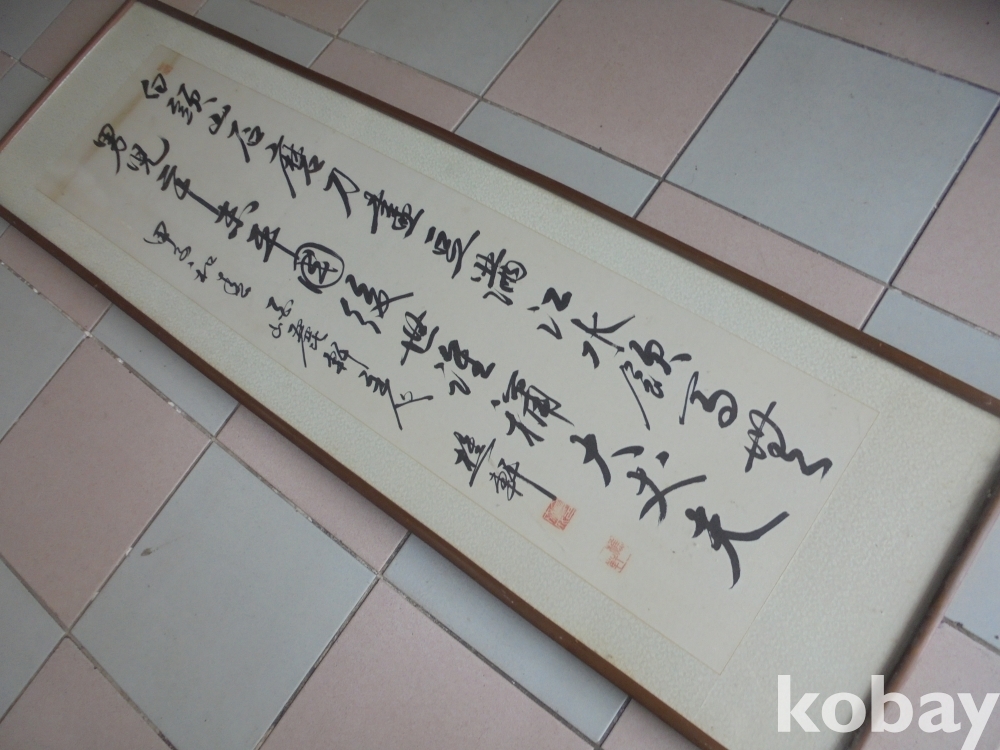 白頭山石磨刀盡豆滿江水飮馬無
男兒二十未平國後世誰稱大丈夫
桂軒
kobay